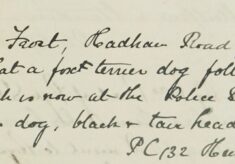 Frost, Hadham Road
at a fox terrier dog foll
h is now at the Police S
dog, black & tan head
P.C. 132